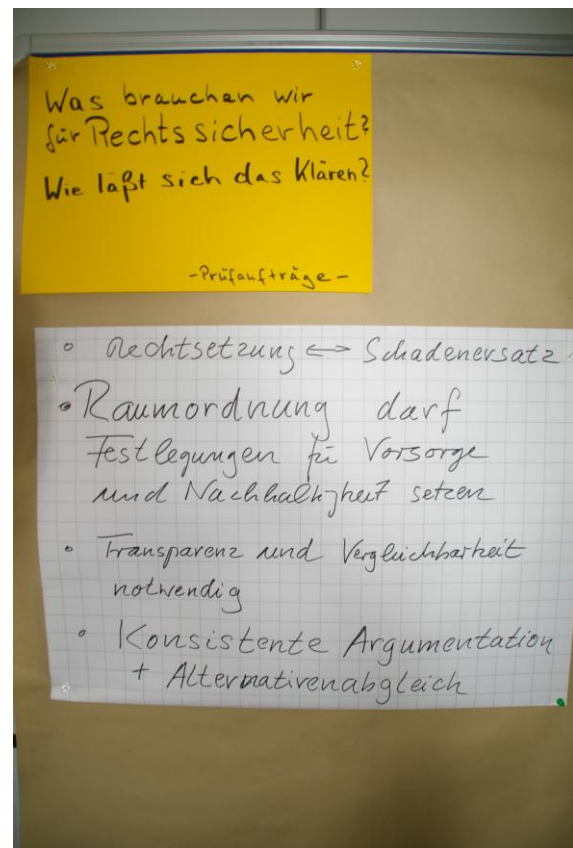 Was brauchen wir
für Rechtssicherheit?
Wie läßt sich das Klären?
-Prüfaufträge-
• Rechtsetzung ⟷ Schadenersatz
• Raumordnung darf
Festlegungen für Vorsorge
und Nachhaltigkeit setzen
• Transparenz und Vergleichbarkeit
notwendig
• Konsistente Argumentation
+ Alternativenabgleich